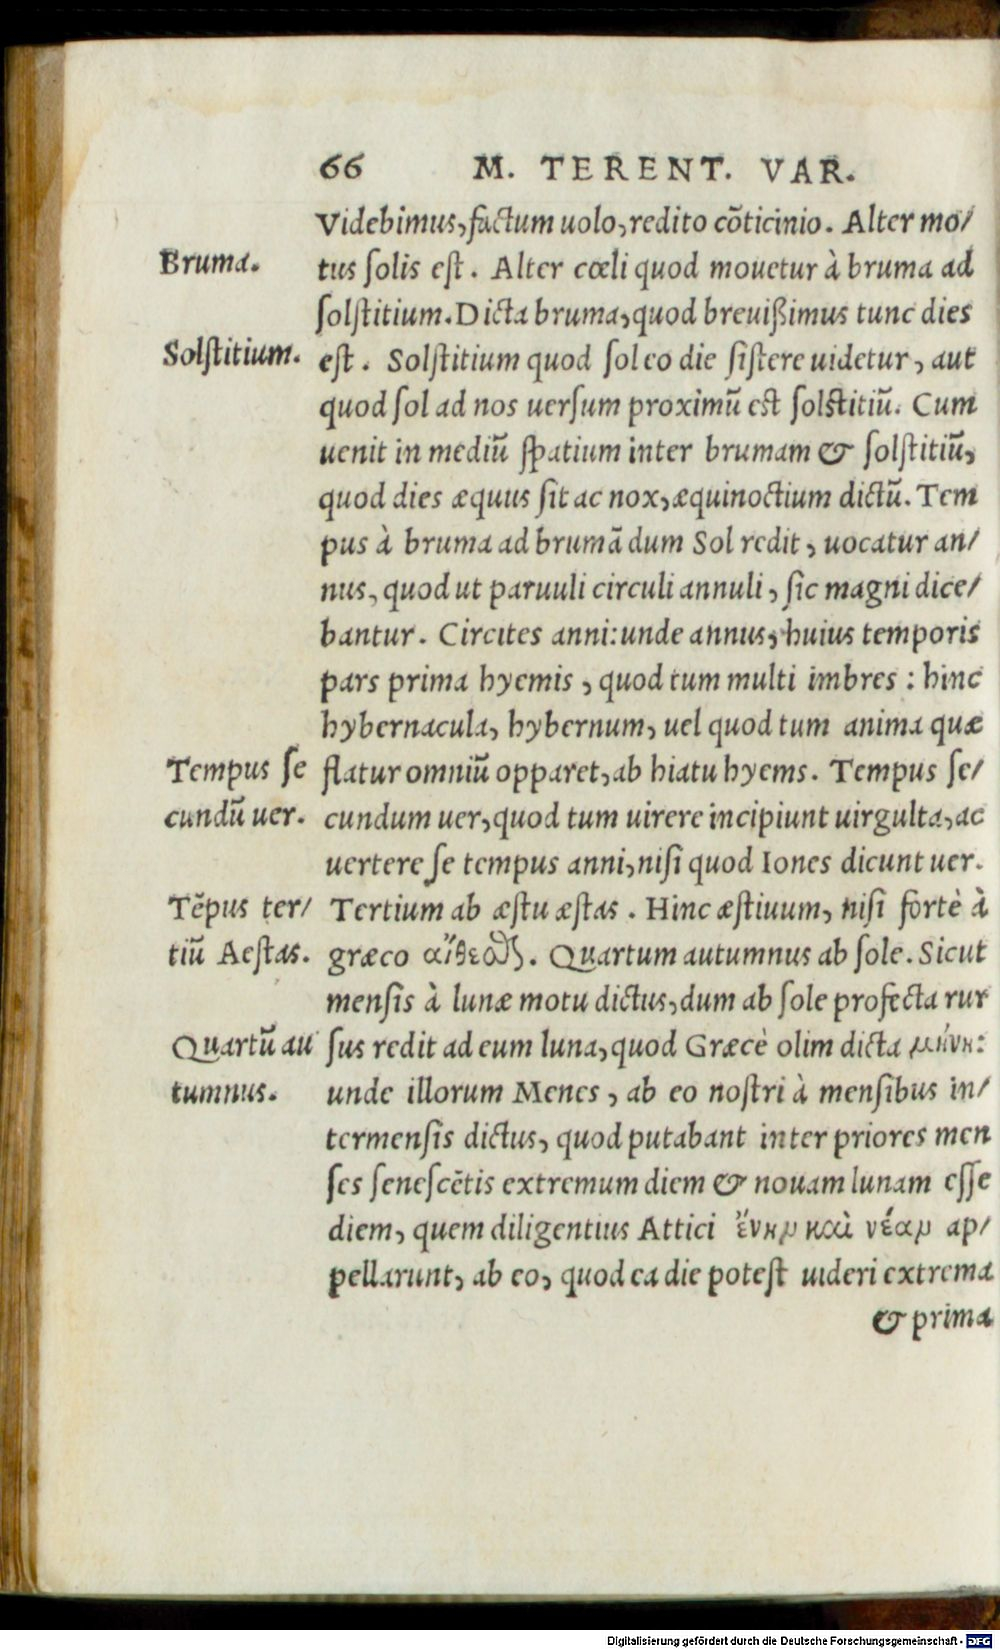 66 M. TERENT. VAR.
Videbimus, factum uolo, redito cõticinio. Alter mo/
Bruma.
tus ſolis eſt. Alter cœli quod mouetur à bruma ad
ſolſtitium. Dicta bruma, quod breuißimus tunc dies
Solſtitium.
eſt. Solſtitium quod ſol eo die ſiſtere uidetur, aut
quod ſol ad nos uerſum proximũ est ſolstitiũ. Cum
uenit in mediũ ſpatium inter brumam & ſolſtitiũ,
quod dies æquus ſit ac nox, æquinoctium dictũ. Tem
pus à bruma ad brumã dum Sol redit, uocatur an/
nus, quod ut paruuli circuli annuli, ſic magni dice/
bantur. Circites anni: unde annus, huius temporis
pars prima hyemis, quod tum multi imbres: hinc
hybernacula, hybernum, uel quod tum anima quæ
Tempus ſe
flatur omniũ opparet, ab hiatu hyems. Tempus ſe/
cundũ uer.
cundum uer, quod tum uirere incipiunt uirgulta, ac
uertere ſe tempus anni, niſi quod Iones dicunt uer.
Tẽpus ter/
Tertium ab æſtu æſtas. Hinc æſtiuum, niſi fortè à
tiũ Aeſtas.
græco αἴθεσθς. Quartum autumnus ab ſole. Sicut
menſis à lunæ motu dictus, dum ab ſole profecta rur
Quartũ au
ſus redit ad eum luna, quod Græcè olim dicta μήνη:
tumnus.
unde illorum Menes, ab eo noſtri à menſibus in/
termenſis dictus, quod putabant inter priores men
ſes ſeneſcẽtis extremum diem & nouam lunam eſſe
diem, quem diligentius Attici ἕνην καὶ νέαν ap/
pellarunt, ab eo, quod ea die poteſt uideri extrema
& prima
Digitalisierung gefördert durch die Deutsche Forschungsgemeinschaft - DFG